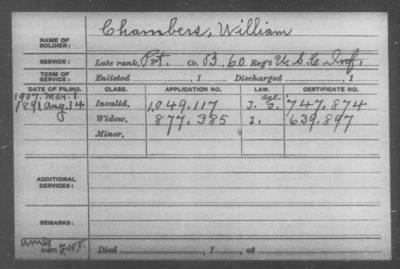 NAME OF SOLDIER: Chambers, William
SERVICE: Late rank, Pvt. Co. B, 60 Reg't U. S. C. Inf.
TERM OF SERVICE: Enlisted , 1 Discharged , 1
DATE OF FILING. CLASS. APPLICATION NO. LAW. CERTIFICATE NO.
1907. Mar. 1 Invalid, 1,049.117 age 747.874
1891 Aug. 14 Widow, 877.385 639.897
Minor,
ADDITIONAL SERVICES:
REMARKS:
Died , 1 , at